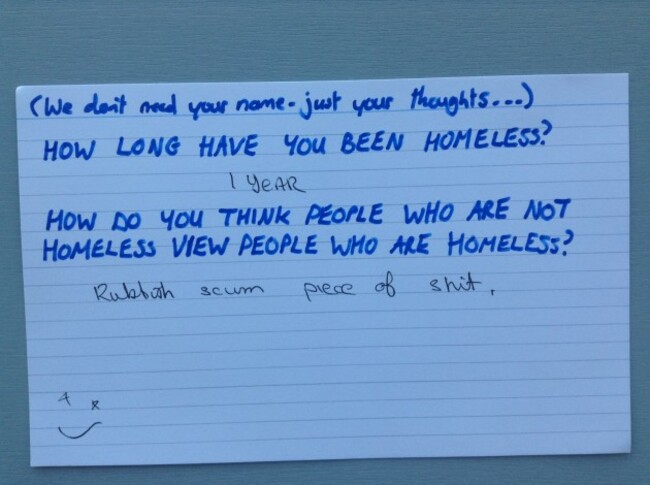 (We don't need your name - just your thoughts...)
HOW LONG HAVE YOU BEEN HOMELESS?
1 YEAR
HOW DO YOU THINK PEOPLE WHO ARE NOT
HOMELESS VIEW PEOPLE WHO ARE HOMELESS?
Rubbish scum piece of shit,